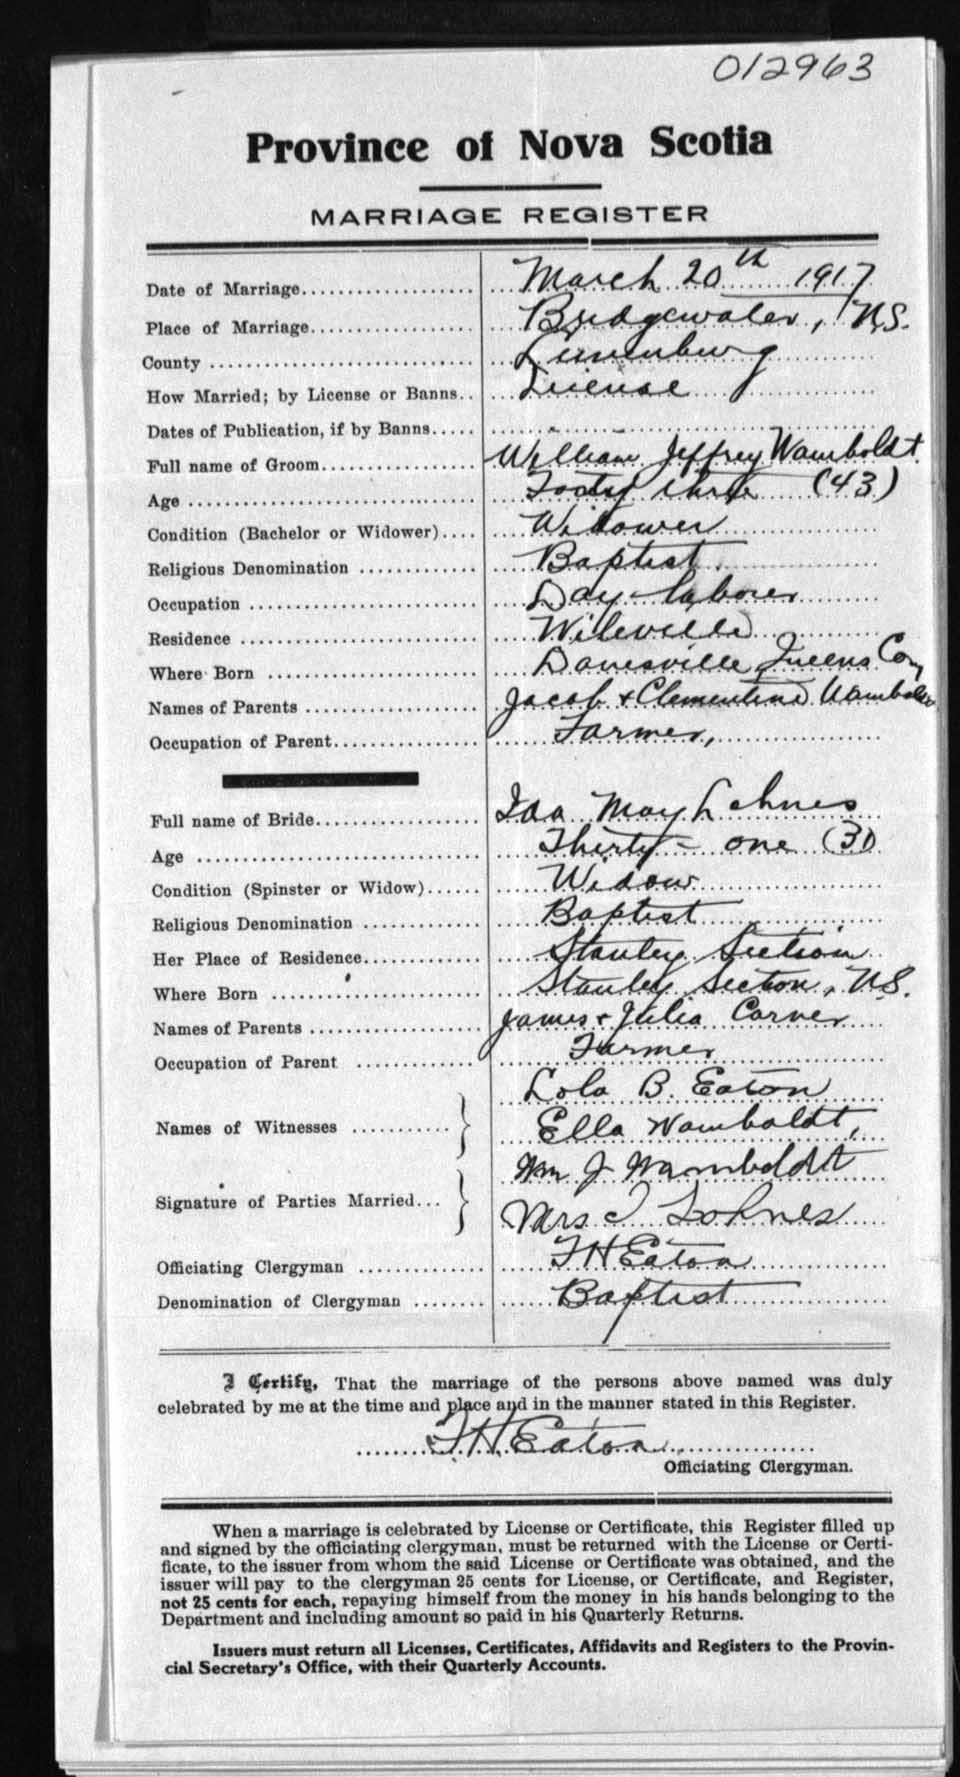 012963
Province of Nova Scotia
MARRIAGE REGISTER
Date of Marriage.................... March 20th 1917
Place of Marriage.................. Bridgewater, N.S.
County ............................. Lunenburg
How Married; by License or Banns.. License
Dates of Publication, if by Banns.....
Full name of Groom................. William Jeffrey Wamboldt
Age ................................ Forty three (43)
Condition (Bachelor or Widower).... Widower
Religious Denomination ............. Baptist
Occupation ......................... Day-laborer
Residence .......................... Wileville
Where Born ....................... Danesville Queens Coy
Names of Parents ................... Jacob & Clementine Wamboldt
Occupation of Parent................ Farmer,
Full name of Bride.................. Ida May Lohnes
Age ................................ Thirty-one (31)
Condition (Spinster or Widow)...... Widow
Religious Denomination ............. Baptist
Her Place of Residence............. Stanley Section
Where Born ....................... Stanley Section, N.S.
Names of Parents ................... James & Julia Carver
Occupation of Parent ............. Farmer
Names of Witnesses ........... } Lola B. Eaton
Ella Wamboldt,
Signature of Parties Married... } Wm J Wamboldt
Mrs I Lohnes
Officiating Clergyman .............. F H Eaton
Denomination of Clergyman ........ Baptist
I Certify, That the marriage of the persons above named was duly
celebrated by me at the time and place and in the manner stated in this Register.
F. H. Eaton
Officiating Clergyman.
When a marriage is celebrated by License or Certificate, this Register filled up
and signed by the officiating clergyman, must be returned with the License or Certi-
ficate, to the issuer from whom the said License or Certificate was obtained, and the
issuer will pay to the clergyman 25 cents for License, or Certificate, and Register,
not 25 cents for each, repaying himself from the money in his hands belonging to the
Department and including amount so paid in his Quarterly Returns.
Issuers must return all Licenses, Certificates, Affidavits and Registers to the Provin-
cial Secretary's Office, with their Quarterly Accounts.